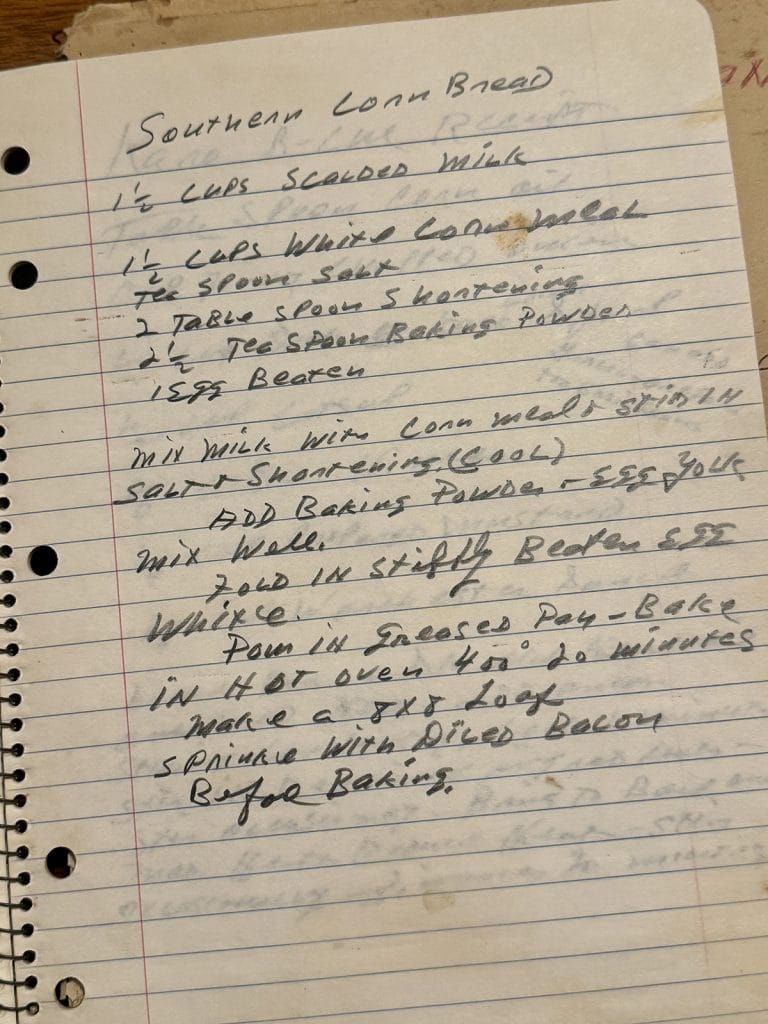 Southern Corn Bread
1½ Cups Scalded Milk
1½ Cups White Corn meal
Tea Spoon Salt
2 Table Spoon Shortening
2½ Tea Spoon Baking Powder
1 Egg Beaten
Mix Milk with Corn meal + Stir IN
Salt + Shortening. (Cool)
ADD Baking Powder + Egg Yolk
Mix Well.
Fold IN Stiffly Beaten Egg
White.
Pour in Greased Pan - Bake
IN HOT oven 400° 20 minutes
Make a 8x8 Loaf
Sprinkle With Diced Bacon
Before Baking.